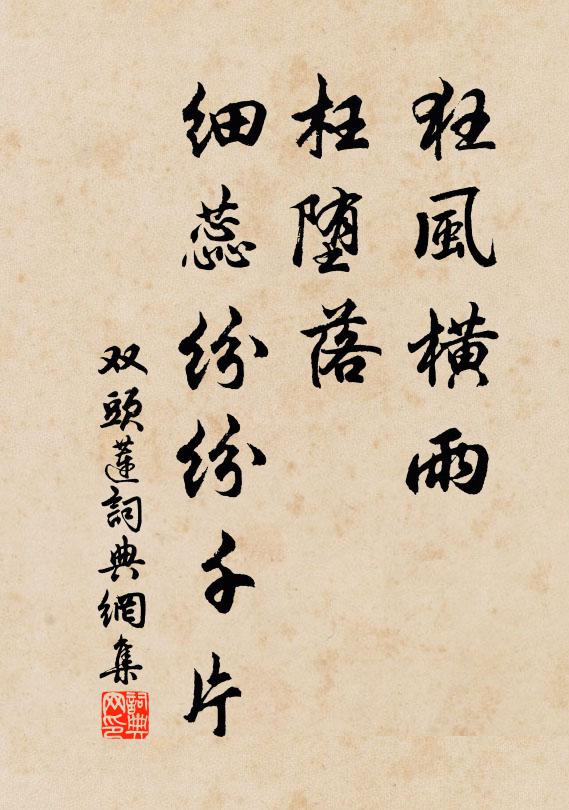 狂風橫雨
枉墮落
細蕊紛紛千片
双頭蓮詞典網集
詞典网印